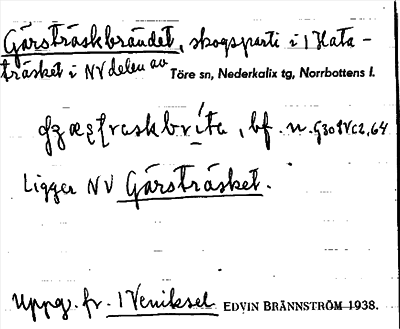 Gårsträskbrändet, skogsparti i 1 Hata-
träsket i NV delen av Töre sn, Nederkalix tg, Norrbottens l.
bf. n.
Ligger NV Gårsträsket.
Uppg. fr. 1 Veniksel EDVIN BRÄNNSTRÖM 1938.